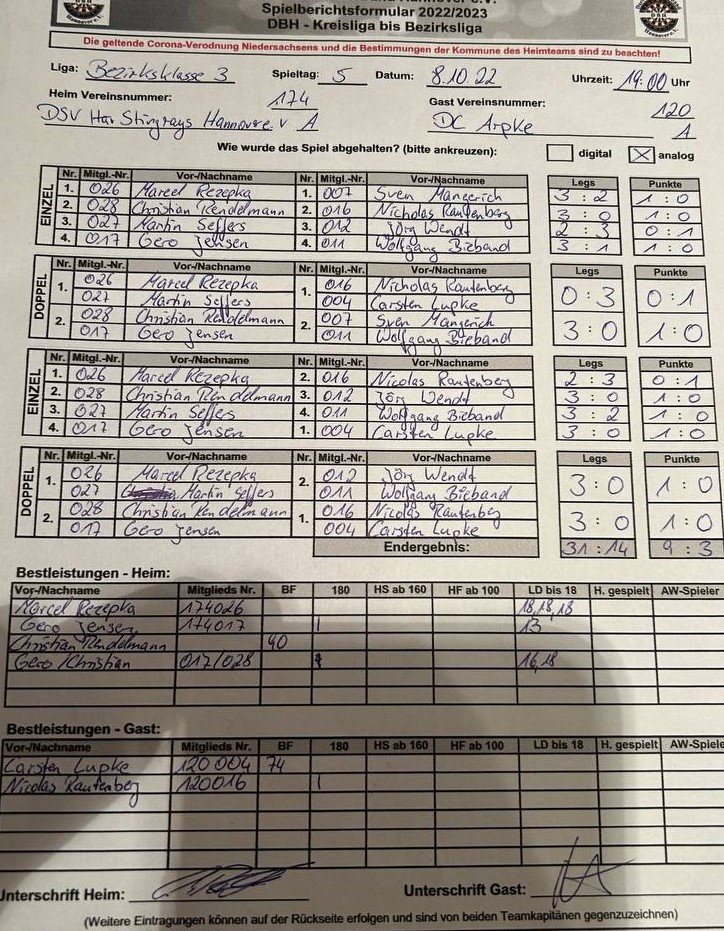 Spielberichtsformular 2022/2023
DBH - Kreisliga bis Bezirksliga
Die geltende Corona-Verodnung Niedersachsens und die Bestimmungen der Kommune des Heimteams sind zu beachten!
Liga: Bezirksklasse 3 Spieltag: 5 Datum: 8.10.22 Uhrzeit: 19:00 Uhr
Heim Vereinsnummer: 174 Gast Vereinsnummer: 120
DSV Har Stingrays Hannover e.V A DC Arpke A
Wie wurde das Spiel abgehalten? (bitte ankreuzen): digital X analog
EINZEL
Nr. Mitgl.-Nr. Vor-/Nachname Nr. Mitgl.-Nr. Vor-/Nachname Legs Punkte
1. 026 Marcel Rezepka 1. 007 Sven Mängerich 3 : 2 1 : 0
2. 028 Christian Rendelmann 2. 016 Nicholas Rautenberg 3 : 0 1 : 0
3. 027 Martin Seffers 3. 012 Jörg Wendt 2 : 3 0 : 1
4. 017 Gero Jensen 4. 011 Wolfgang Bieband 3 : 1 1 : 0
DOPPEL
Nr. Mitgl.-Nr. Vor-/Nachname Nr. Mitgl.-Nr. Vor-/Nachname Legs Punkte
1. 026 Marcel Rezepka 1. 016 Nicholas Rautenberg 0 : 3 0 : 1
027 Martin Seffers 004 Carsten Lupke
2. 028 Christian Rendelmann 2. 007 Sven Mängerich 3 : 0 1 : 0
017 Gero Jensen 011 Wolfgang Bieband
EINZEL
Nr. Mitgl.-Nr. Vor-/Nachname Nr. Mitgl.-Nr. Vor-/Nachname Legs Punkte
1. 026 Marcel Rezepka 2. 016 Nicolas Rautenberg 2 : 3 0 : 1
2. 028 Christian Rendelmann 3. 012 Jörg Wendt 3 : 0 1 : 0
3. 027 Martin Seffers 4. 011 Wolfgang Bieband 3 : 2 1 : 0
4. 017 Gero Jensen 1. 004 Carsten Lupke 3 : 0 1 : 0
DOPPEL
Nr. Mitgl.-Nr. Vor-/Nachname Nr. Mitgl.-Nr. Vor-/Nachname Legs Punkte
1. 026 Marcel Rezepka 2. 012 Jörg Wendt 3 : 0 1 : 0
027 Martin Seffers 011 Wolfgang Bieband
2. 028 Christian Rendelmann 1. 016 Nicolas Rautenbeg 3 : 0 1 : 0
017 Gero Jensen 004 Carsten Lupke
Endergebnis: 31 : 14 9 : 3
Bestleistungen - Heim:
Vor-/Nachname Mitglieds Nr. BF 180 HS ab 160 HF ab 100 LD bis 18 H. gespielt AW-Spieler
Marcel Rezepka 174026 18,18,18
Gero Jensen 174017 | 13
Christian Rendelmann 40
Gero / Christian 017/028 16,18
Bestleistungen - Gast:
Vor-/Nachname Mitglieds Nr. BF 180 HS ab 160 HF ab 100 LD bis 18 H. gespielt AW-Spiele
Carsten Lupke 120004 74
Nicolas Rautenbeg 120016 |
Unterschrift Heim: Unterschrift Gast:
(Weitere Eintragungen können auf der Rückseite erfolgen und sind von beiden Teamkapitänen gegenzuzeichnen)